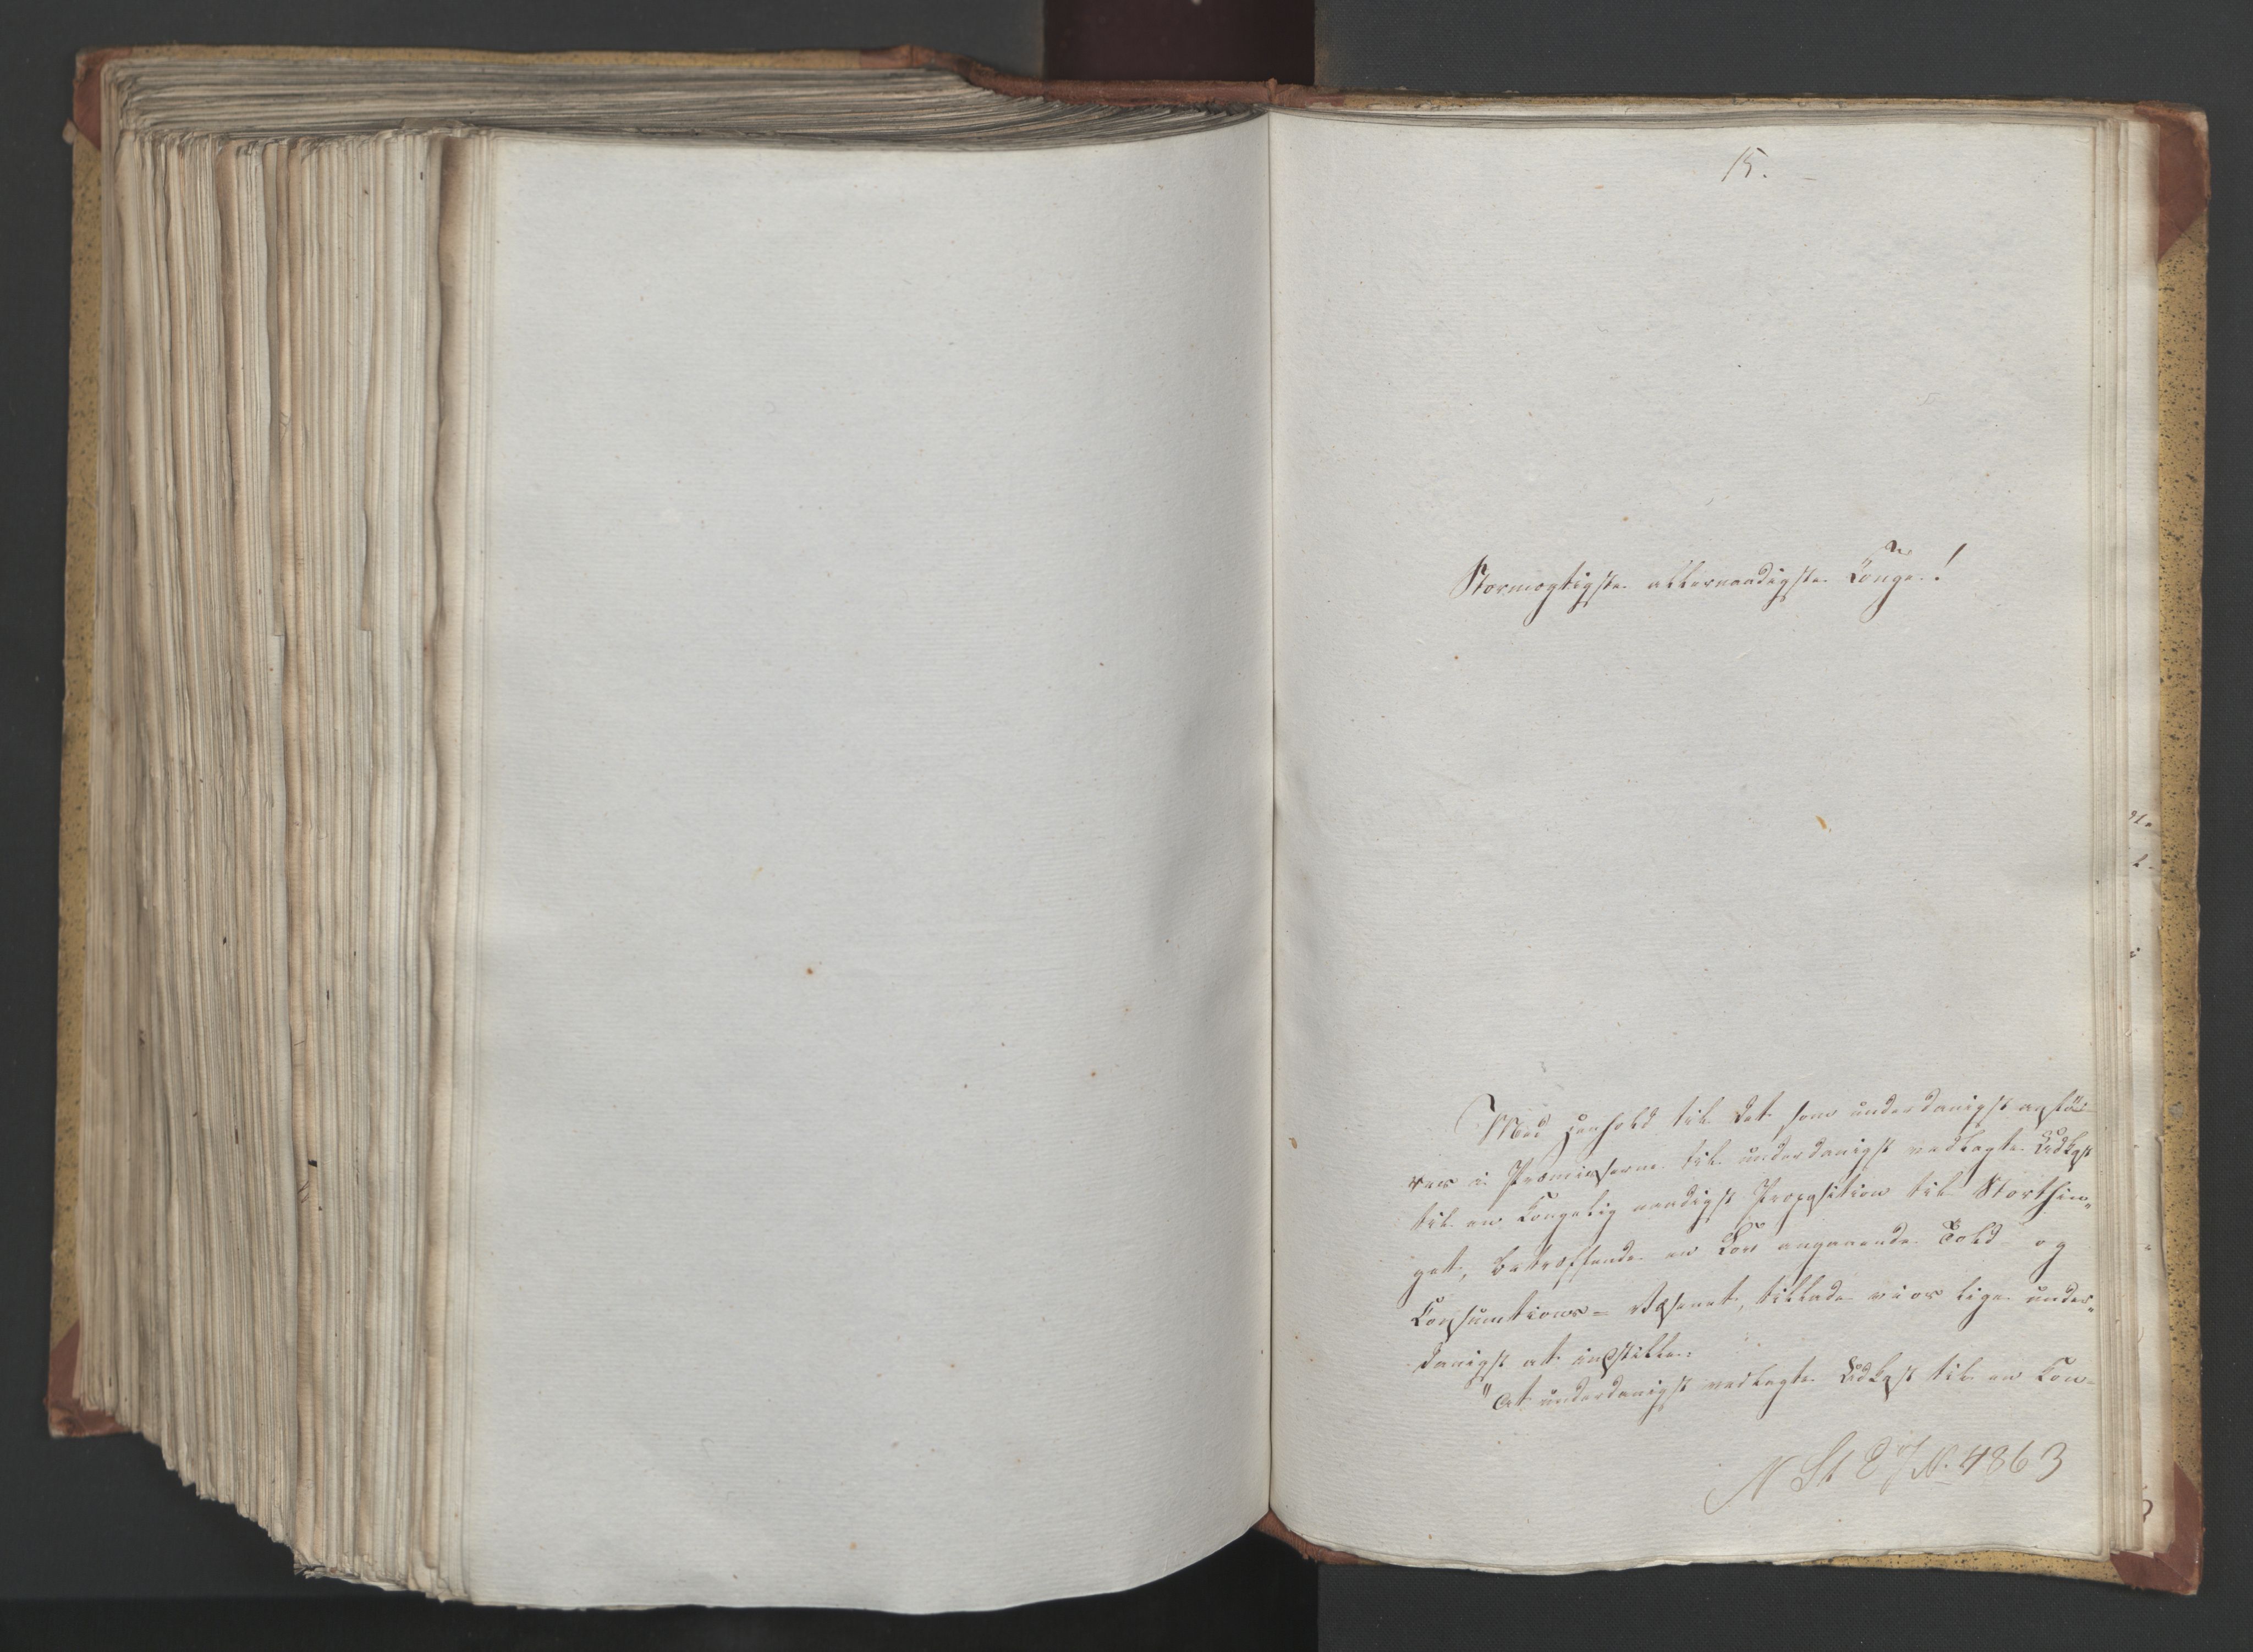 15.
Stormægtigste allernaadigste Konge!
Med Henhold til det som underdanigst anfö-
res i Præmisserne til underdanigst vedlagte Udkast
til en Kongelig naadigst Proposition til Storthin„
get, betreffende en Lov angaaende Told- og
Consumtions- Væsenet, tillade vi os lige under„
danigst at indstille:
"At underdanigst vedlagte Udkast til en Kon-
N St No 4863